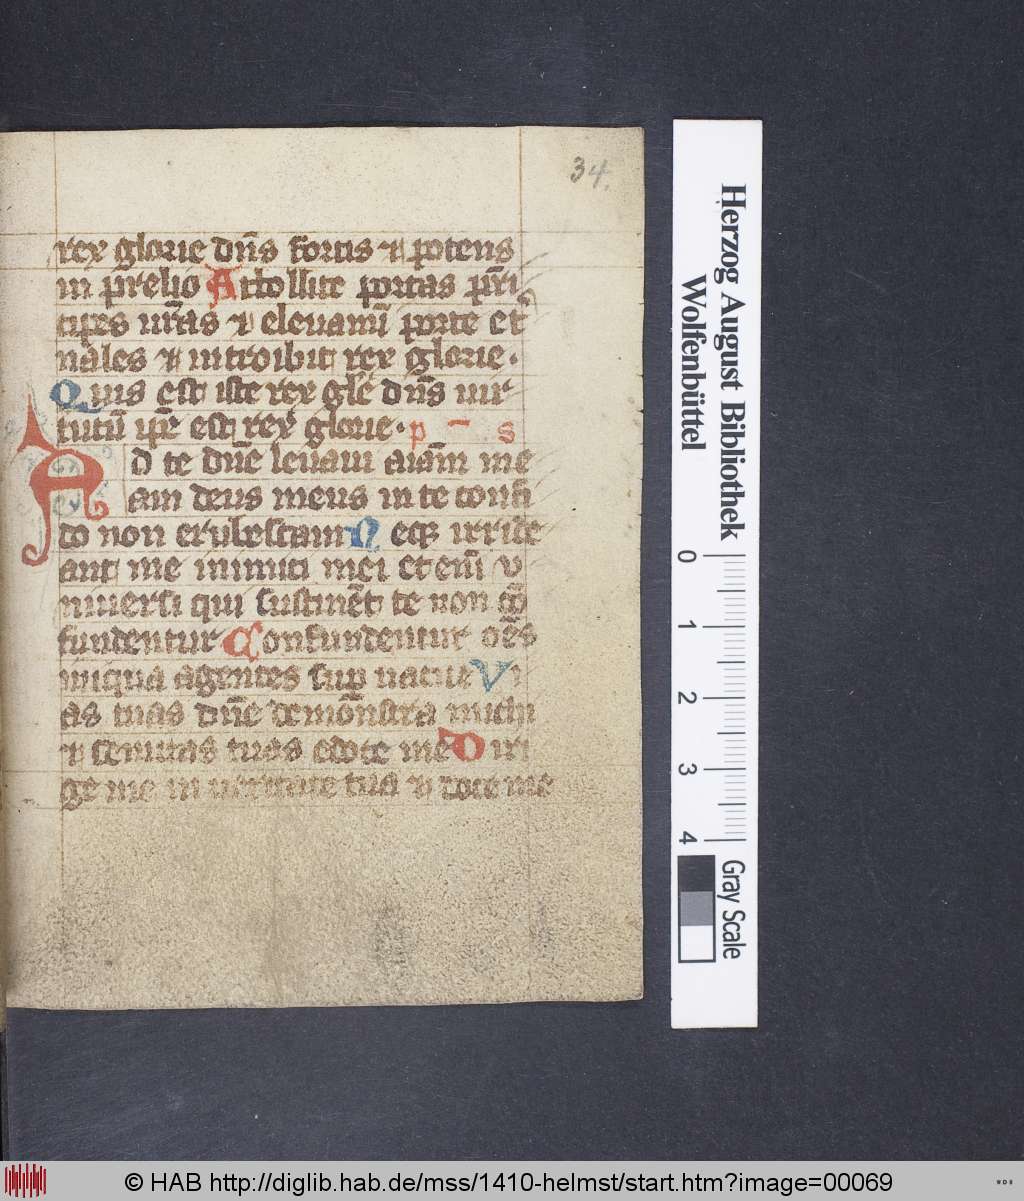 34.
rex glorie dn̄s fortis ⁊ potens
in prelio Attollite portas prī
cipes ur̄as ⁊ eleuamī porte et
nales ⁊ introibit rex glorie.
Quis est iste rex gl̄e dn̄s uir
tutū ip̄e est rex glorie. p s
AD te dn̄e leuaui aīam me
am deus meus in te confi
do non erubescam Neqꝫ irride
ant me inimici mei etenī v
niuersi qui sustinēt te non cō
fundentur Confundentur om̄s
iniqua agentes sup uacue Vi
as tuas dn̄e demōnstra michi
⁊ semitas tuas edoce me Diri
ge me in ueritate tua ⁊ doce me
Herzog August Bibliothek
Wolfenbüttel
0 1 2 3 4
Gray Scale
© HAB http://diglib.hab.de/mss/1410-helmst/start.htm?image=00069